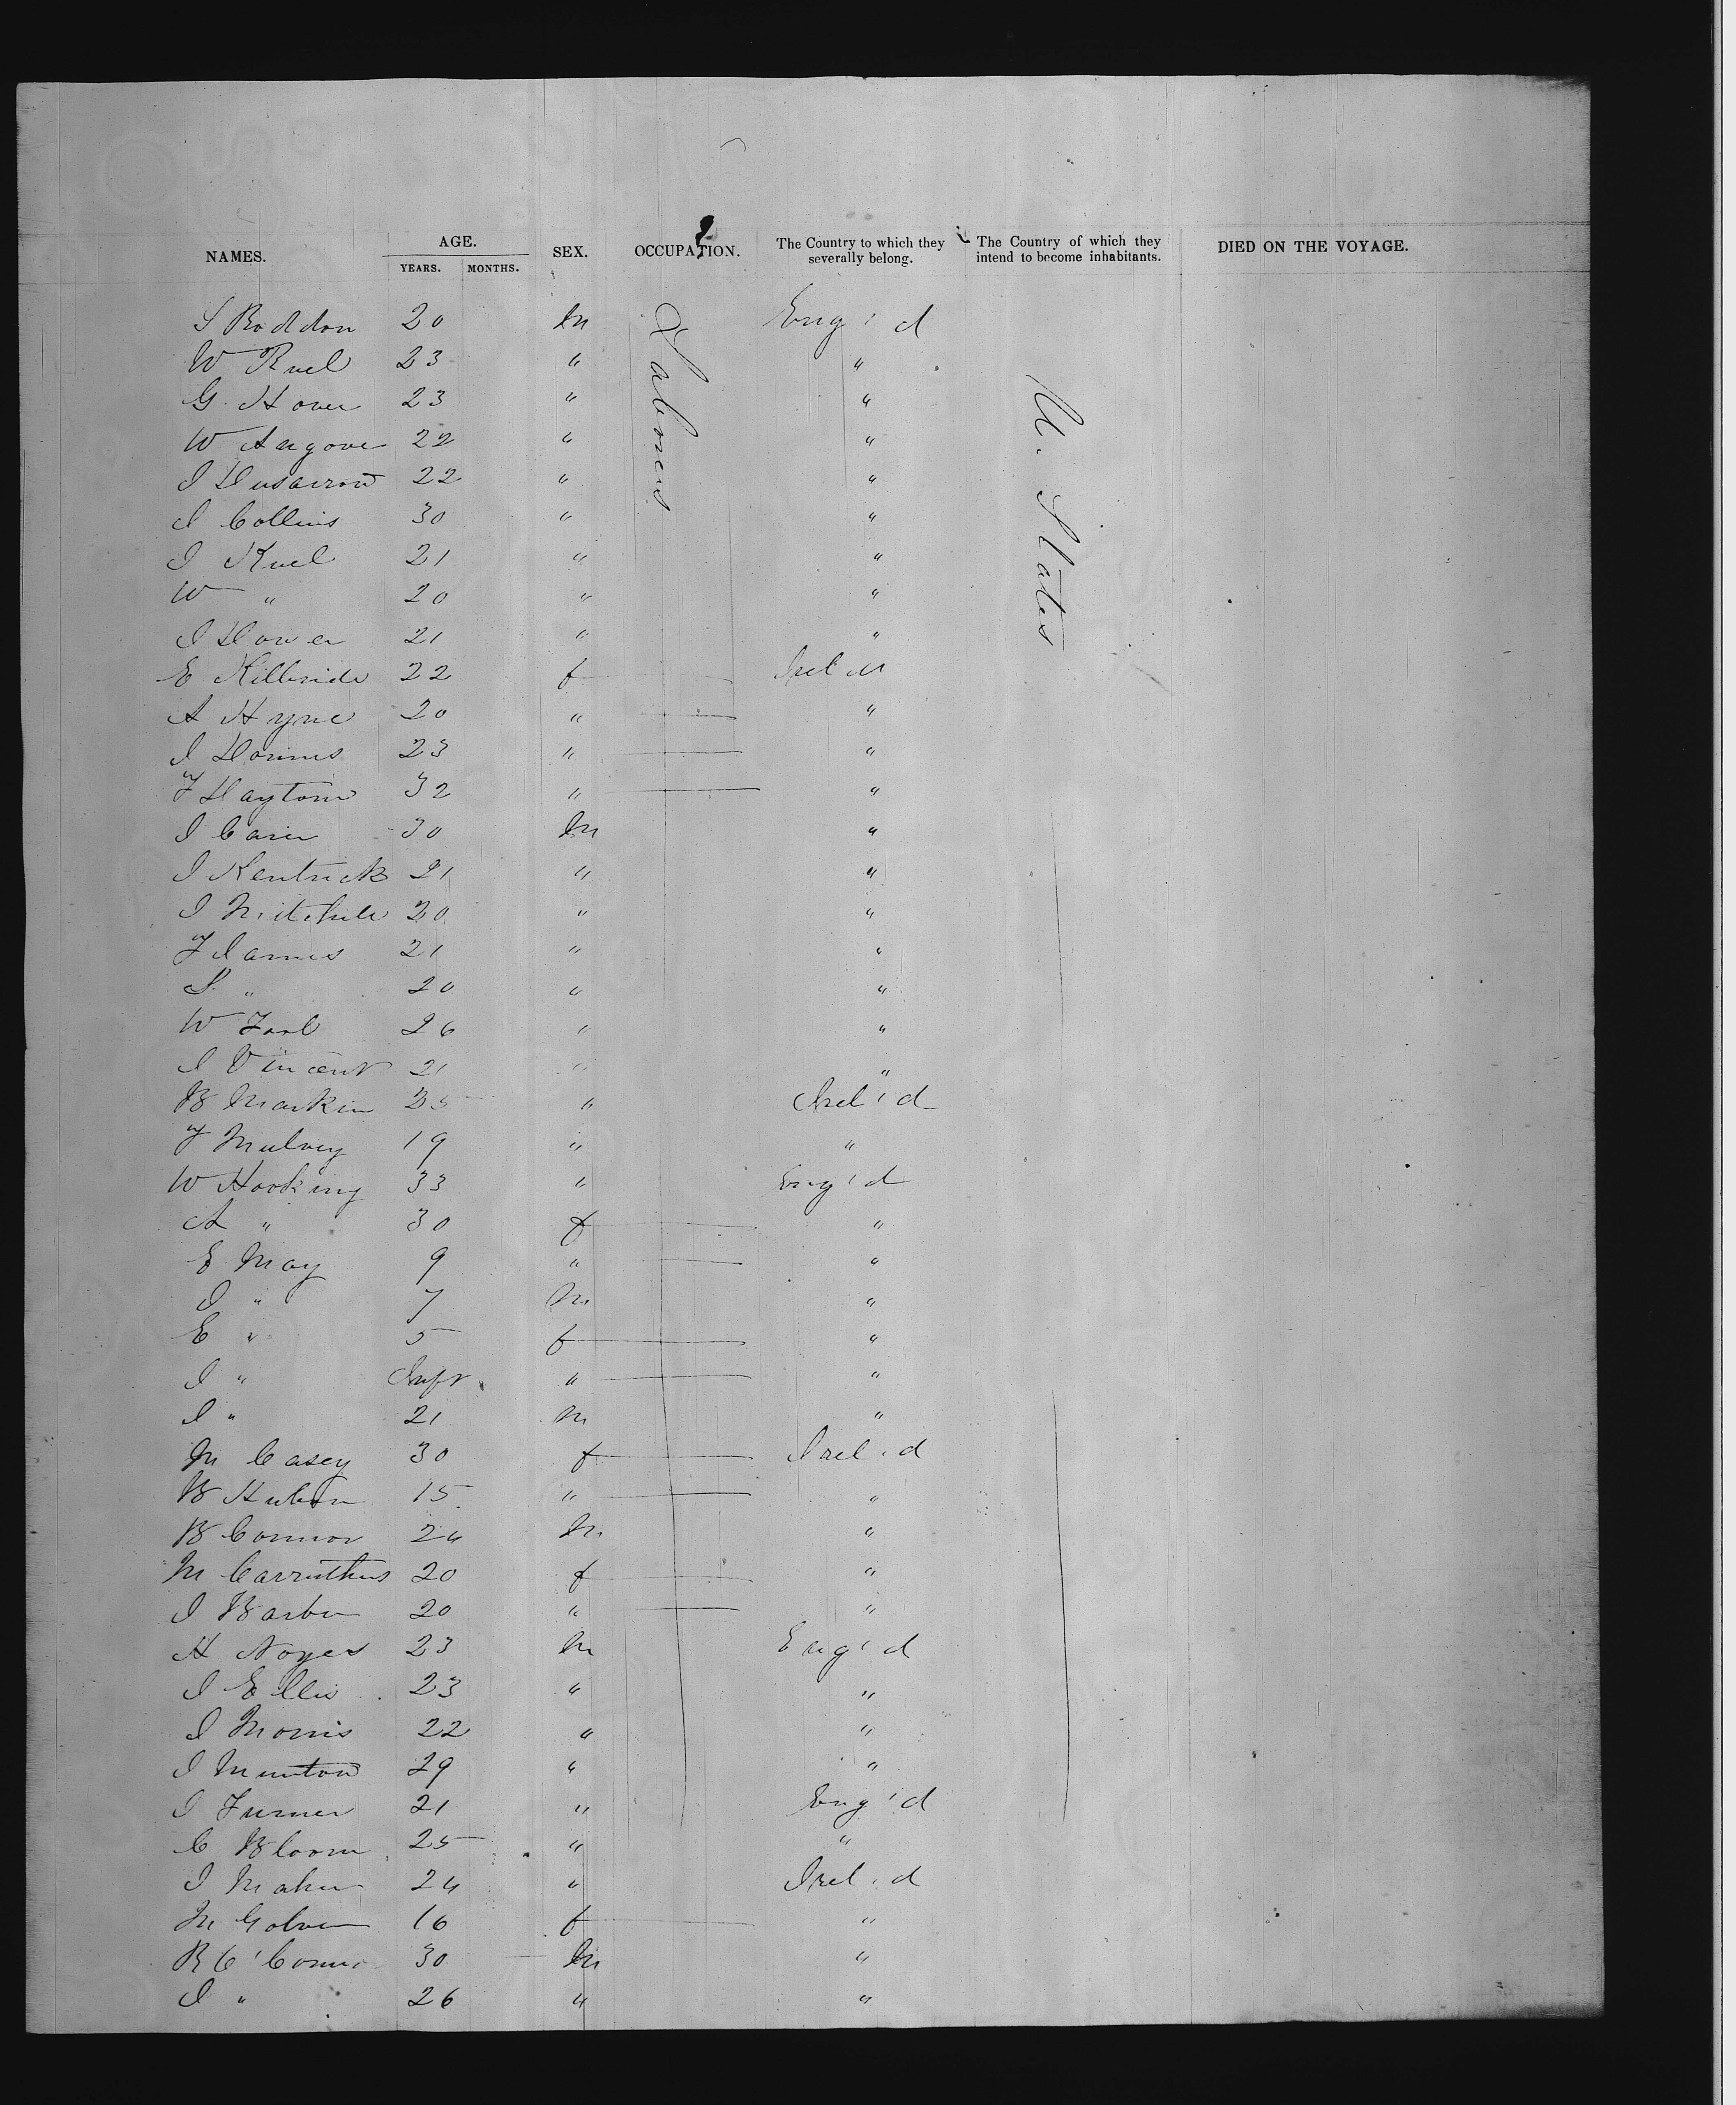 NAMES. AGE. SEX. OCCUPATION. The Country to which they severally belong. The Country of which they intend to become inhabitants. DIED ON THE VOYAGE.
YEARS. MONTHS.
Laborers
U. States
S Boddon 20 m Eng'd
W Ruel 23 " "
G. Hover 23 " "
W Angove 22 " "
I 22 " "
I Collins 30 " "
I Ruel 21 " "
W " 20 " "
I Dower 21 " "
E Killbride 22 f Irel
A Hyne 20 " "
I 23 " "
F Daytom 32 " "
I 30 m "
I Kentrick 21 " "
I Mitchele 20 " "
F James 21 " "
S " 20 " "
W 26 " "
I Vincent 21 " "
B Markin 35 " Irel'd
F Mulvey 19 " "
W Hocking 33 " Eng'd
A " 30 f "
E May 9 " "
I " 7 m "
E " 5 f "
I " Inft. " "
I " 21 m "
M Casey 30 f Irel'd
B 15 " "
B Connor 24 m "
M Carruthus 20 f "
I Barbu 20 " "
H Noyes 23 m Eng'd
I Ellis 23 " "
I Morris 22 " "
I Munton 29 " "
I Turner 21 " Eng'd
C Bloom 25 " "
I Maher 24 " Irel'd
M Galvin 16 f "
B O'Connor 30 m "
I " 26 " "